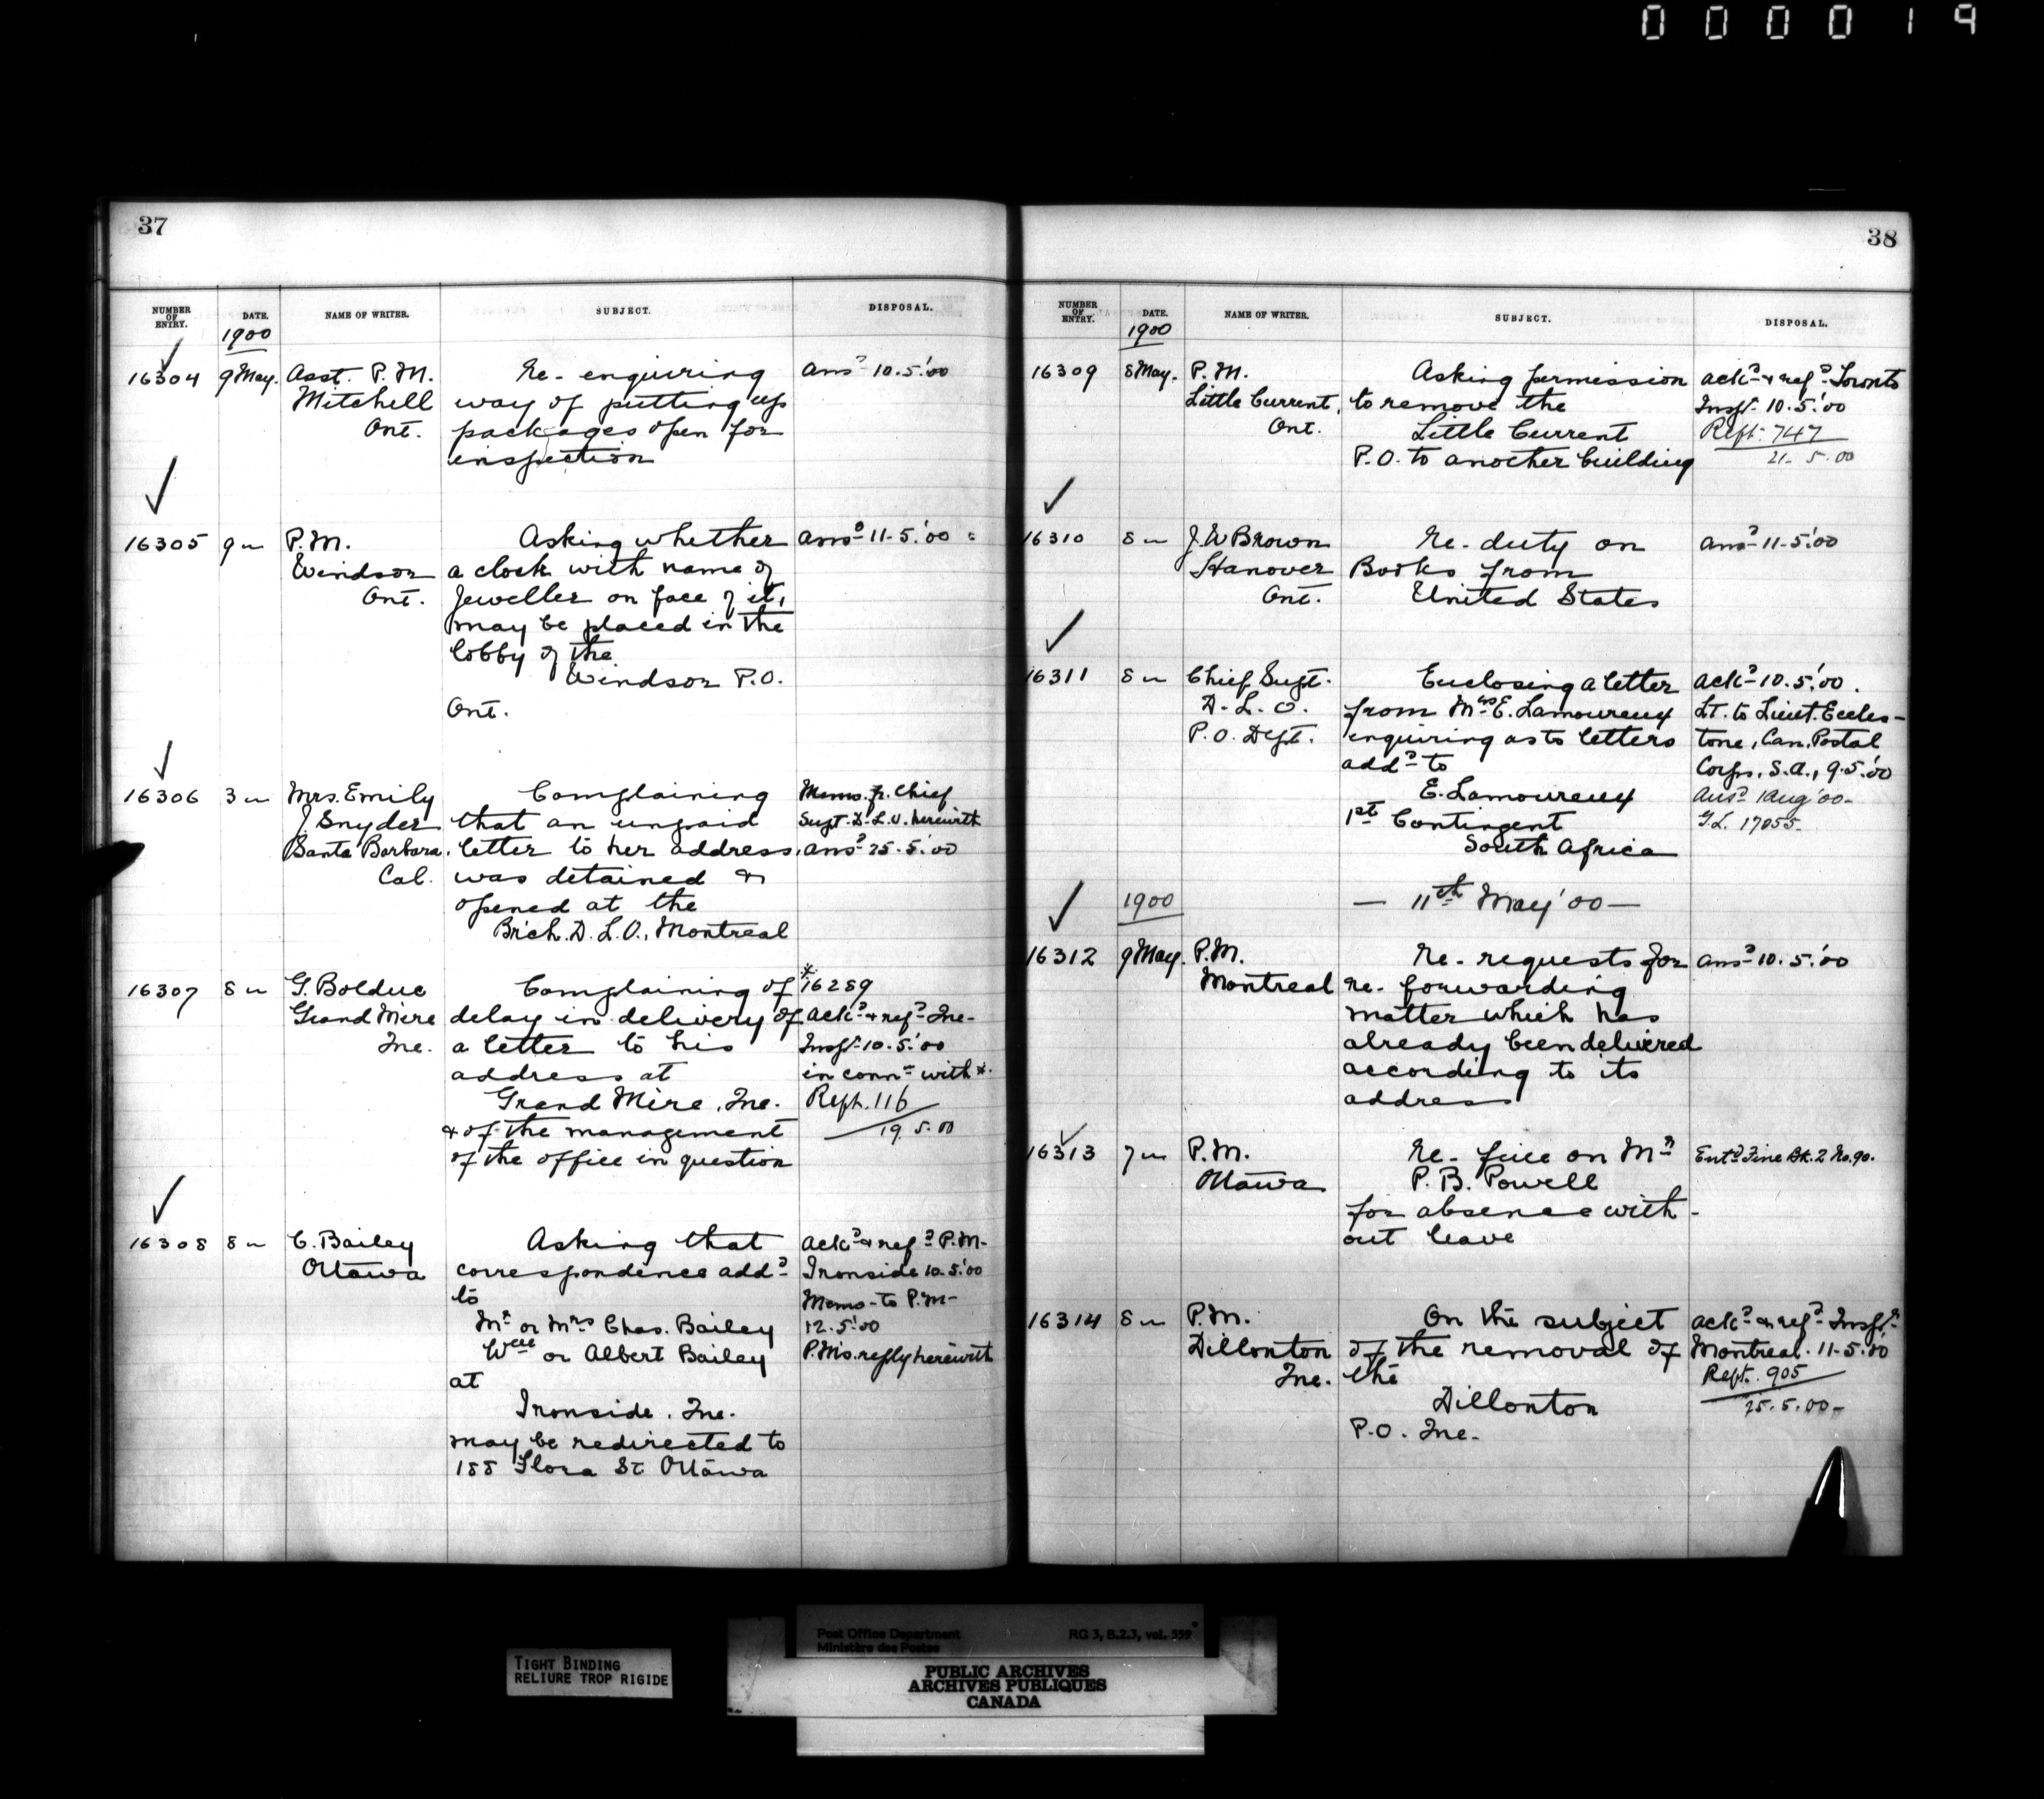 000019
37
NUMBER OF ENTRY. DATE. NAME OF WRITER. SUBJECT. DISPOSAL.
1900
16304 9 May. Asst. P.M. Re- enquiring ansd 10.5.'00
Mitchell way of putting up
Ont. packages open for
inspection
16305 9 " P.M. Asking whether ansd 11-5.'00
Windsor a clock with name of
Ont. Jeweller on face of it,
may be placed in the
lobby of the
Windsor P.O.
Ont.
16306 3 " Mrs. Emily Complaining Memo. fr. Chief
J Snyder that an unpaid Supt. D.L.O. herewith
Santa Barbara. letter to her address, ansd 25.5.'00
Cal. was detained &
opened at the
Brich. D.L.O., Montreal
16307 8 " G. Bolduc Complaining of * 16289
Grand Mère delay in delivery of ackd & refd Que-
Que. a letter to his Inspr 10.5.'00
address at in connn with *.
Grand Mère, Que. Rept. 116
& of the management 19.5.00
of the office in question
16308 8 " C. Bailey Asking that ackd & refd P.M.
Ottawa correspondence addd Ironside 10.5.'00
to Memo- to P.M-
Mr or Mrs Chas. Bailey 12.5.'00
Wm or Albert Bailey P.M's. reply herewith
at
Ironside, Que.
may be redirected to
188 Flora St. Ottawa
38
NUMBER OF ENTRY. DATE. NAME OF WRITER. SUBJECT. DISPOSAL.
1900
16309 8 May. P.M. Asking permission ackd & refd Toronto
Little Current, to remove the Inspr 10.5.'00
Ont. Little Current Rept. 747
P.O. to another building 21.5.00
16310 8 " J. W Brown Re- duty on ansd 11-5.'00
Hanover Books from
Ont. United States
16311 8 " Chief Supt. Enclosing a letter ackd 10.5.'00.
D.L.O. from Mrs E. Lamoureux Lt. to Lieut. Eccles-
P.O. Dept. enquiring as to letters tone, Can. Postal
addd to Corps, S.A., 9.5.'00
E. Lamoureux Ansd 1 Aug '00-
1st Contingent G.L. 17055-
South Africa
1900 — 11th May '00 —
16312 9 May. P.M. Re- requests for ansd 10.5.'00
Montreal re- forwarding
matter which has
already been delivered
according to its
address
16313 7 " P.M. Re- fine on Mr Entd Fine Bk. 2 No. 90.
Ottawa P.B. Powell
for absence with-
out leave
16314 8 " P.M. On the subject ackd & refd Inspr
Dillonton of the removal of Montreal. 11-5.'00
Que. the Rept. 905
Dillonton 25.5.00-
P.O. Que.
TIGHT BINDING
RELIURE TROP RIGIDE
Post Office Department RG 3, B.2.3, vol. 559
Ministère des Postes
PUBLIC ARCHIVES
ARCHIVES PUBLIQUES
CANADA